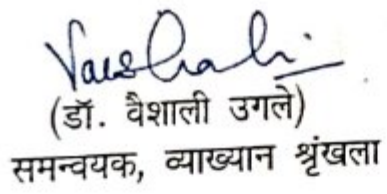 Vaishali
(डॉ. वैशाली उगले)
समन्वयक, व्याख्यान श्रृंखला